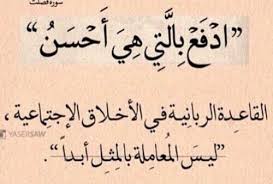 سورة فصلت
” ادْفَعْ بِالَّتِي هِيَ أَحْسَنُ “
القاعدة الربانية في الأخلاق الإجتماعية ،
YASERSAW
” ليسَ المُعاملة بالمِثل أبداً “